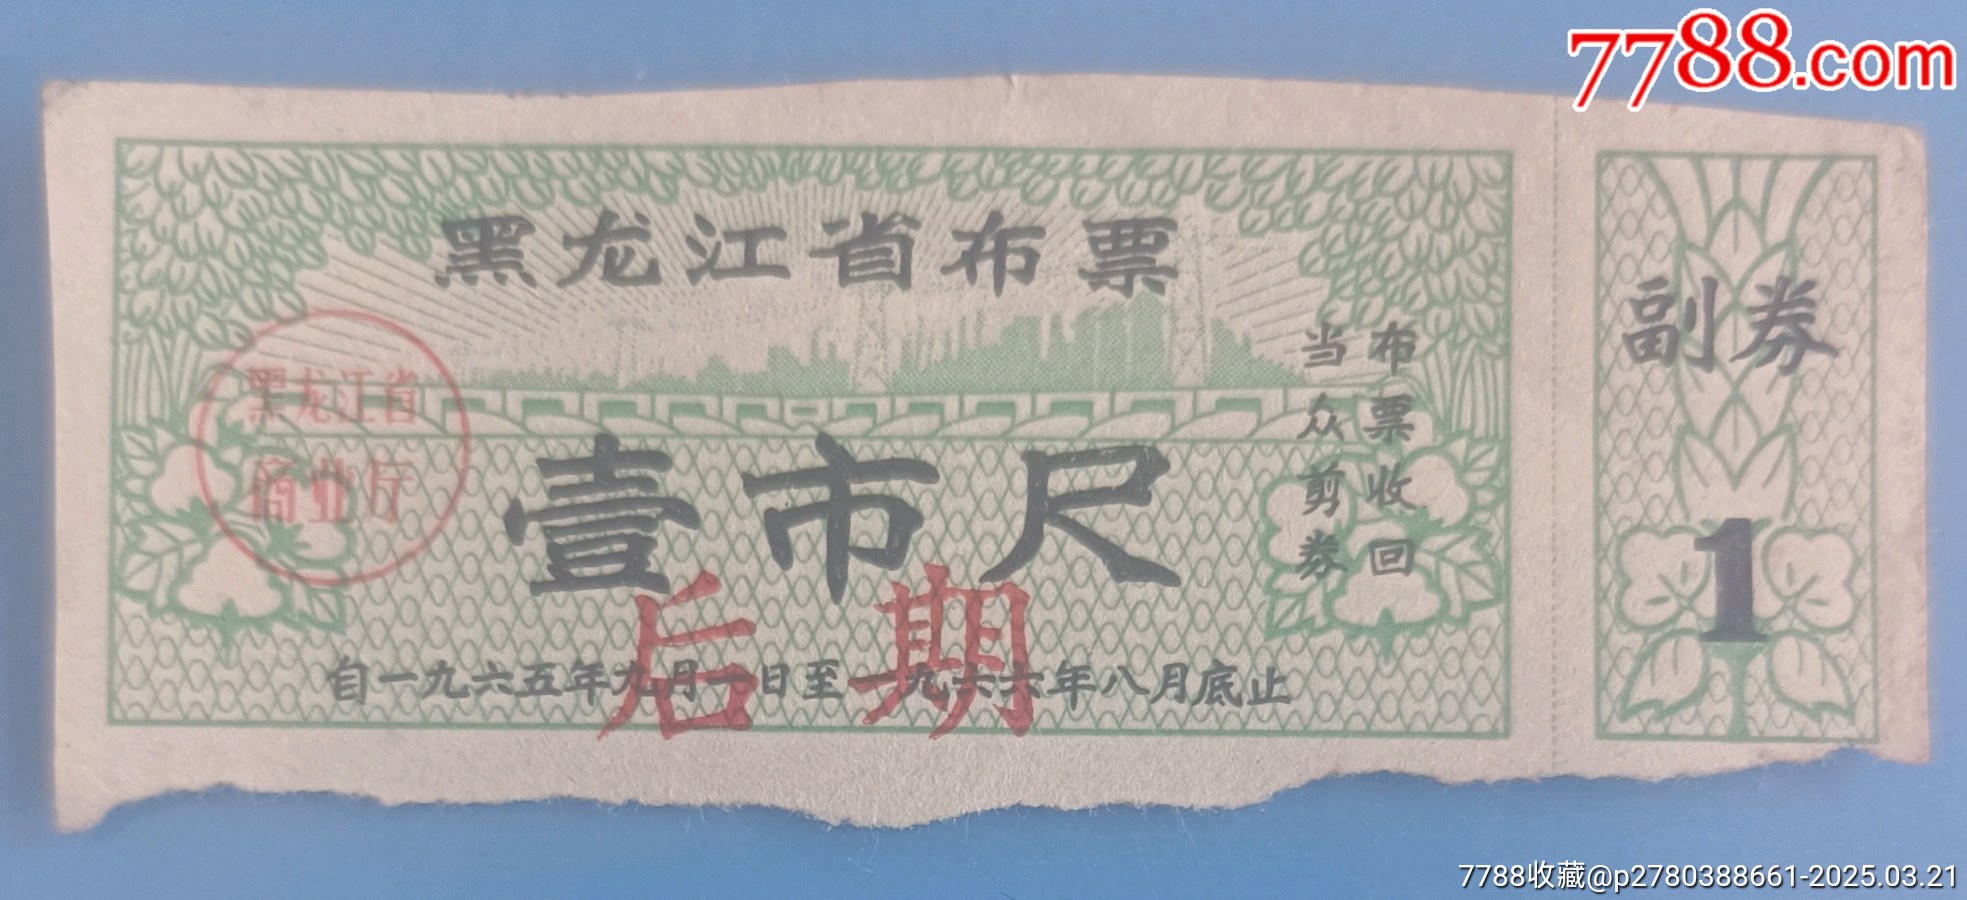 7788.com
黑龙江省布票
黑龙江省
商业厅
壹市尺
布票收回
当众剪券
后期
自一九六五年九月一日至一九六六年八月底止
副券
1
7788收藏@p2780388661-2025.03.21